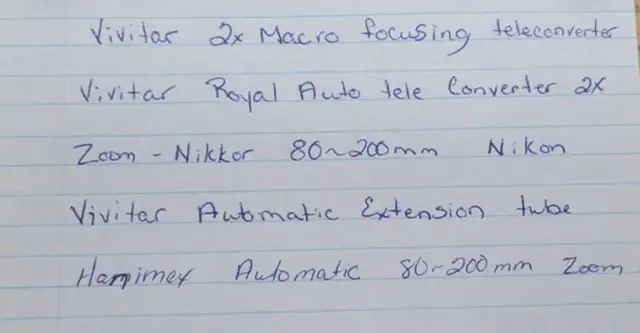 Vivitar 2x Macro focusing teleconverter
Vivitar Royal Auto tele Converter 2x
Zoom - Nikkor 80~200mm Nikon
Vivitar Automatic Extension tube
Automatic 80-200mm Zoom